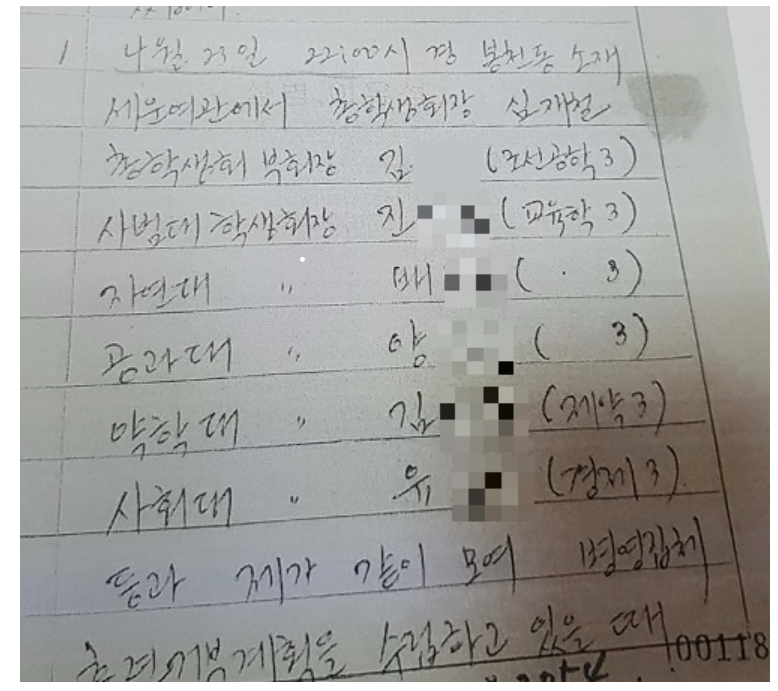 1 4월 23일 22:00시 경 봉천동 소재
세운여관에서 총학생회장 심재철
총학생회 부회장 김 (조선공학 3)
사범대 학생회장 진 (교육학 3)
자연대 〃 배 ( . 3)
공과대 〃 양 ( 3)
약학대 〃 김 (제약 3)
사회대 〃 유 (경제 3)
등과 제가 같이 모여 병영집체
훈련거부계획을 수립하고 있을 때
00118